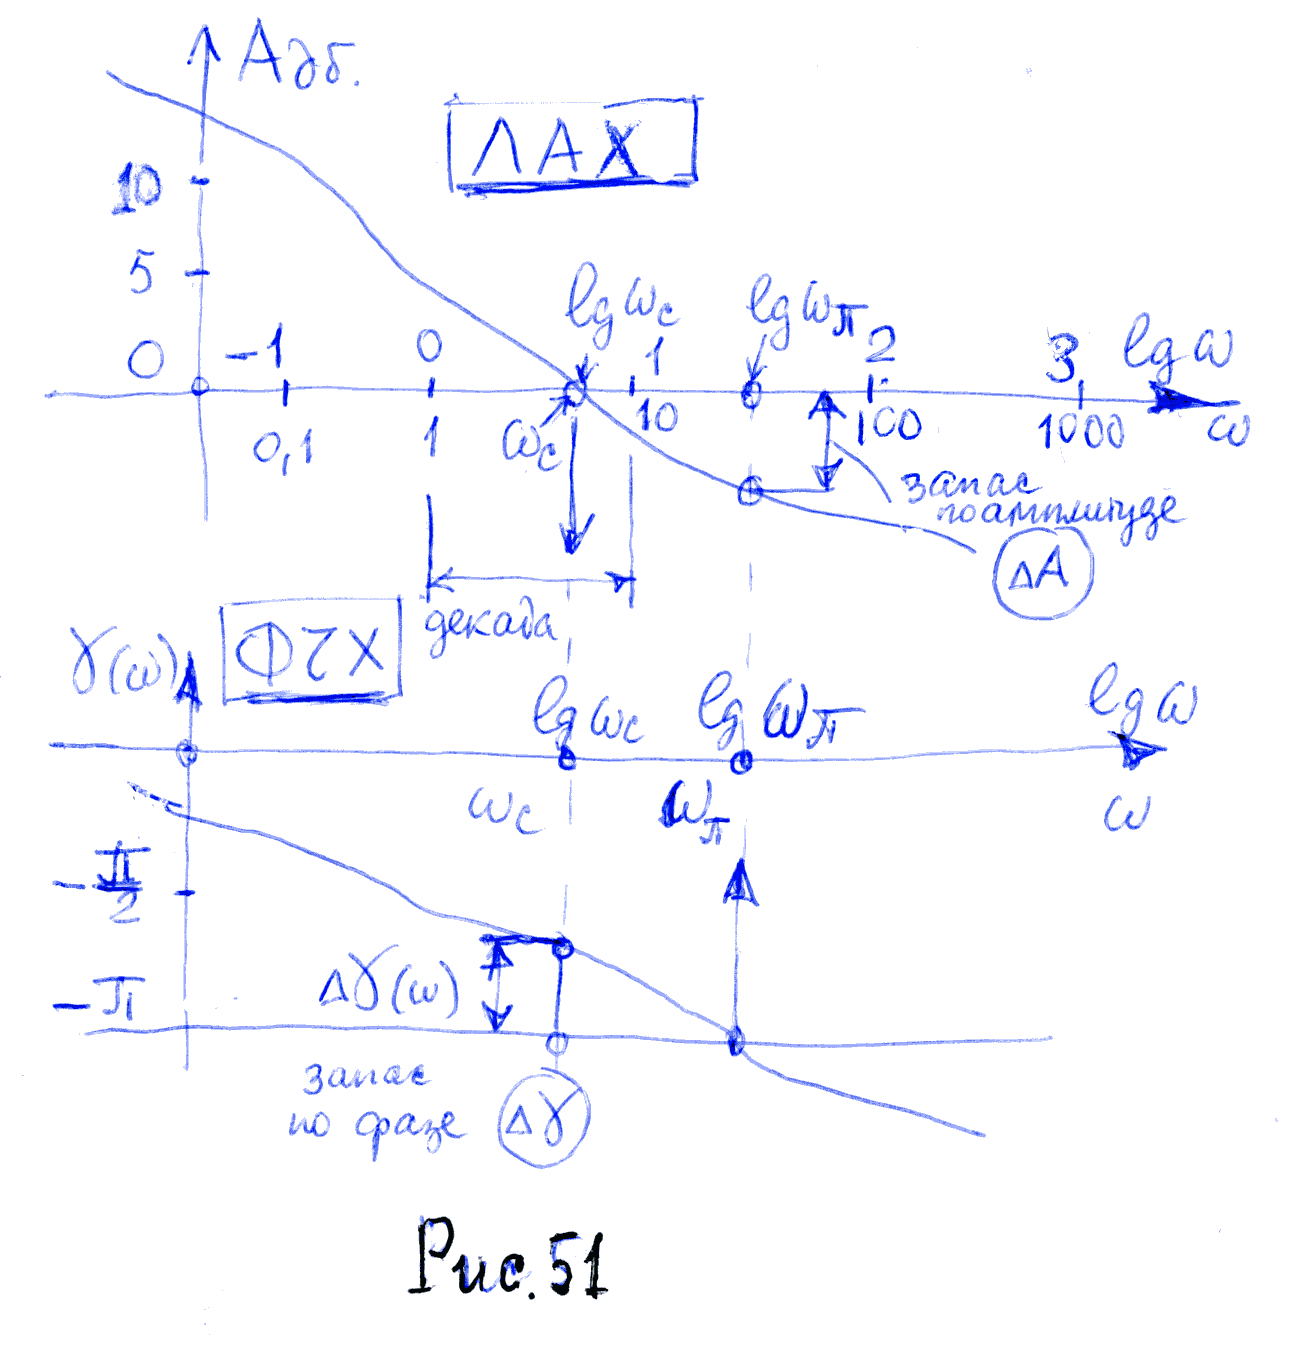 Адб.
ЛАХ
10
5
0
-1
0
lg ωc
1
lg ωπ
2
3
lg ω
0,1
1
ωc
10
100
1000
ω
запас
по амплитуде
ΔA
декада
γ(ω)
ФЧХ
lg ωc
lg ωπ
lg ω
ωc
ωπ
ω
-π/2
Δγ(ω)
-π
запас
по фазе
Δγ
Рис. 51